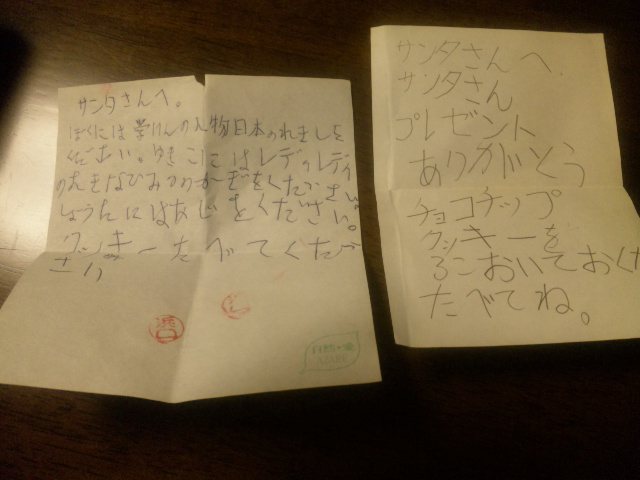 サンタさんへ。
ぼくには学けんの人物日本のれきしを
ください。ゆきこにはレディレディ
のたきなひみつのかぎをください。
しょうたにはあじをください。
クッキーたべてくだ
さい
渋口
自然・愛
サンタさんへ
サンタさん
プレゼント
ありがとう
チョコチップ
クッキーを
ろこおいておくね
たべてね。